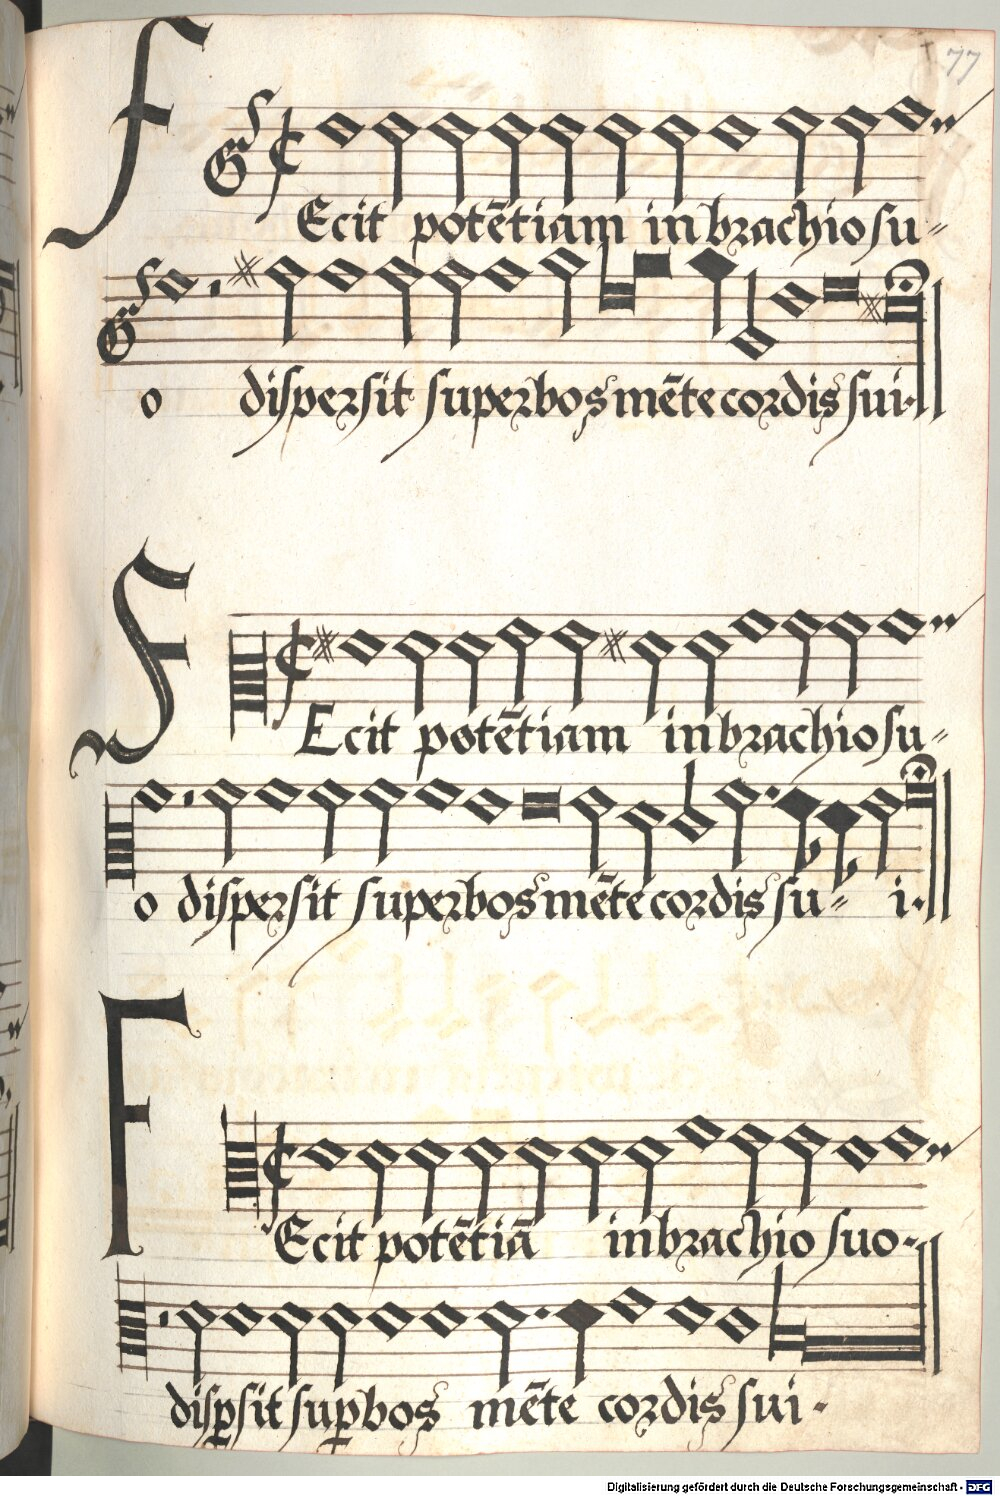 77
FEcit potētiam in brachio su⸗
o dispersit superbos mēte cordis sui.
FEcit potētiam in brachio su⸗
o dispersit superbos mēte cordis su⸗ i.
FEcit potētiā in brachio suo.
disꝑsit suꝑbos mēte cordis sui.
Digitalisierung gefördert durch die Deutsche Forschungsgemeinschaft - DFG